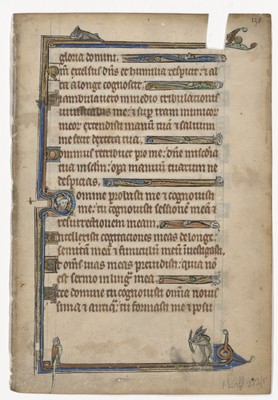 gloria domini.
Qm̄ excelsus dn̄s et humilia respicit: et al
ta a longe cognoscit.
Si ambulavero in medio tribulationis
vivificabis me: et sup iram inimicor
meor extendisti manū tuā et salvum
me fecit dextera tua.
Dominus retribuet pro me: dn̄e misc̄dia
tua in sclm̄: opa manuū tuarum ne
despicias.
Domine probasti me et cognovisti
me: tu cognovisti sessionē meā et
resurrectionem meam.
Intellexisti cogitaciones meas de longe:
semitā meā et funiculū meū īvestigasti.
Et om̄s vias meas previdisti: quia nō
est sermo in lingua mea.
Ecce domine tu cognovisti om̄ia novis
sima et antiq̄: tu formasti me et posu